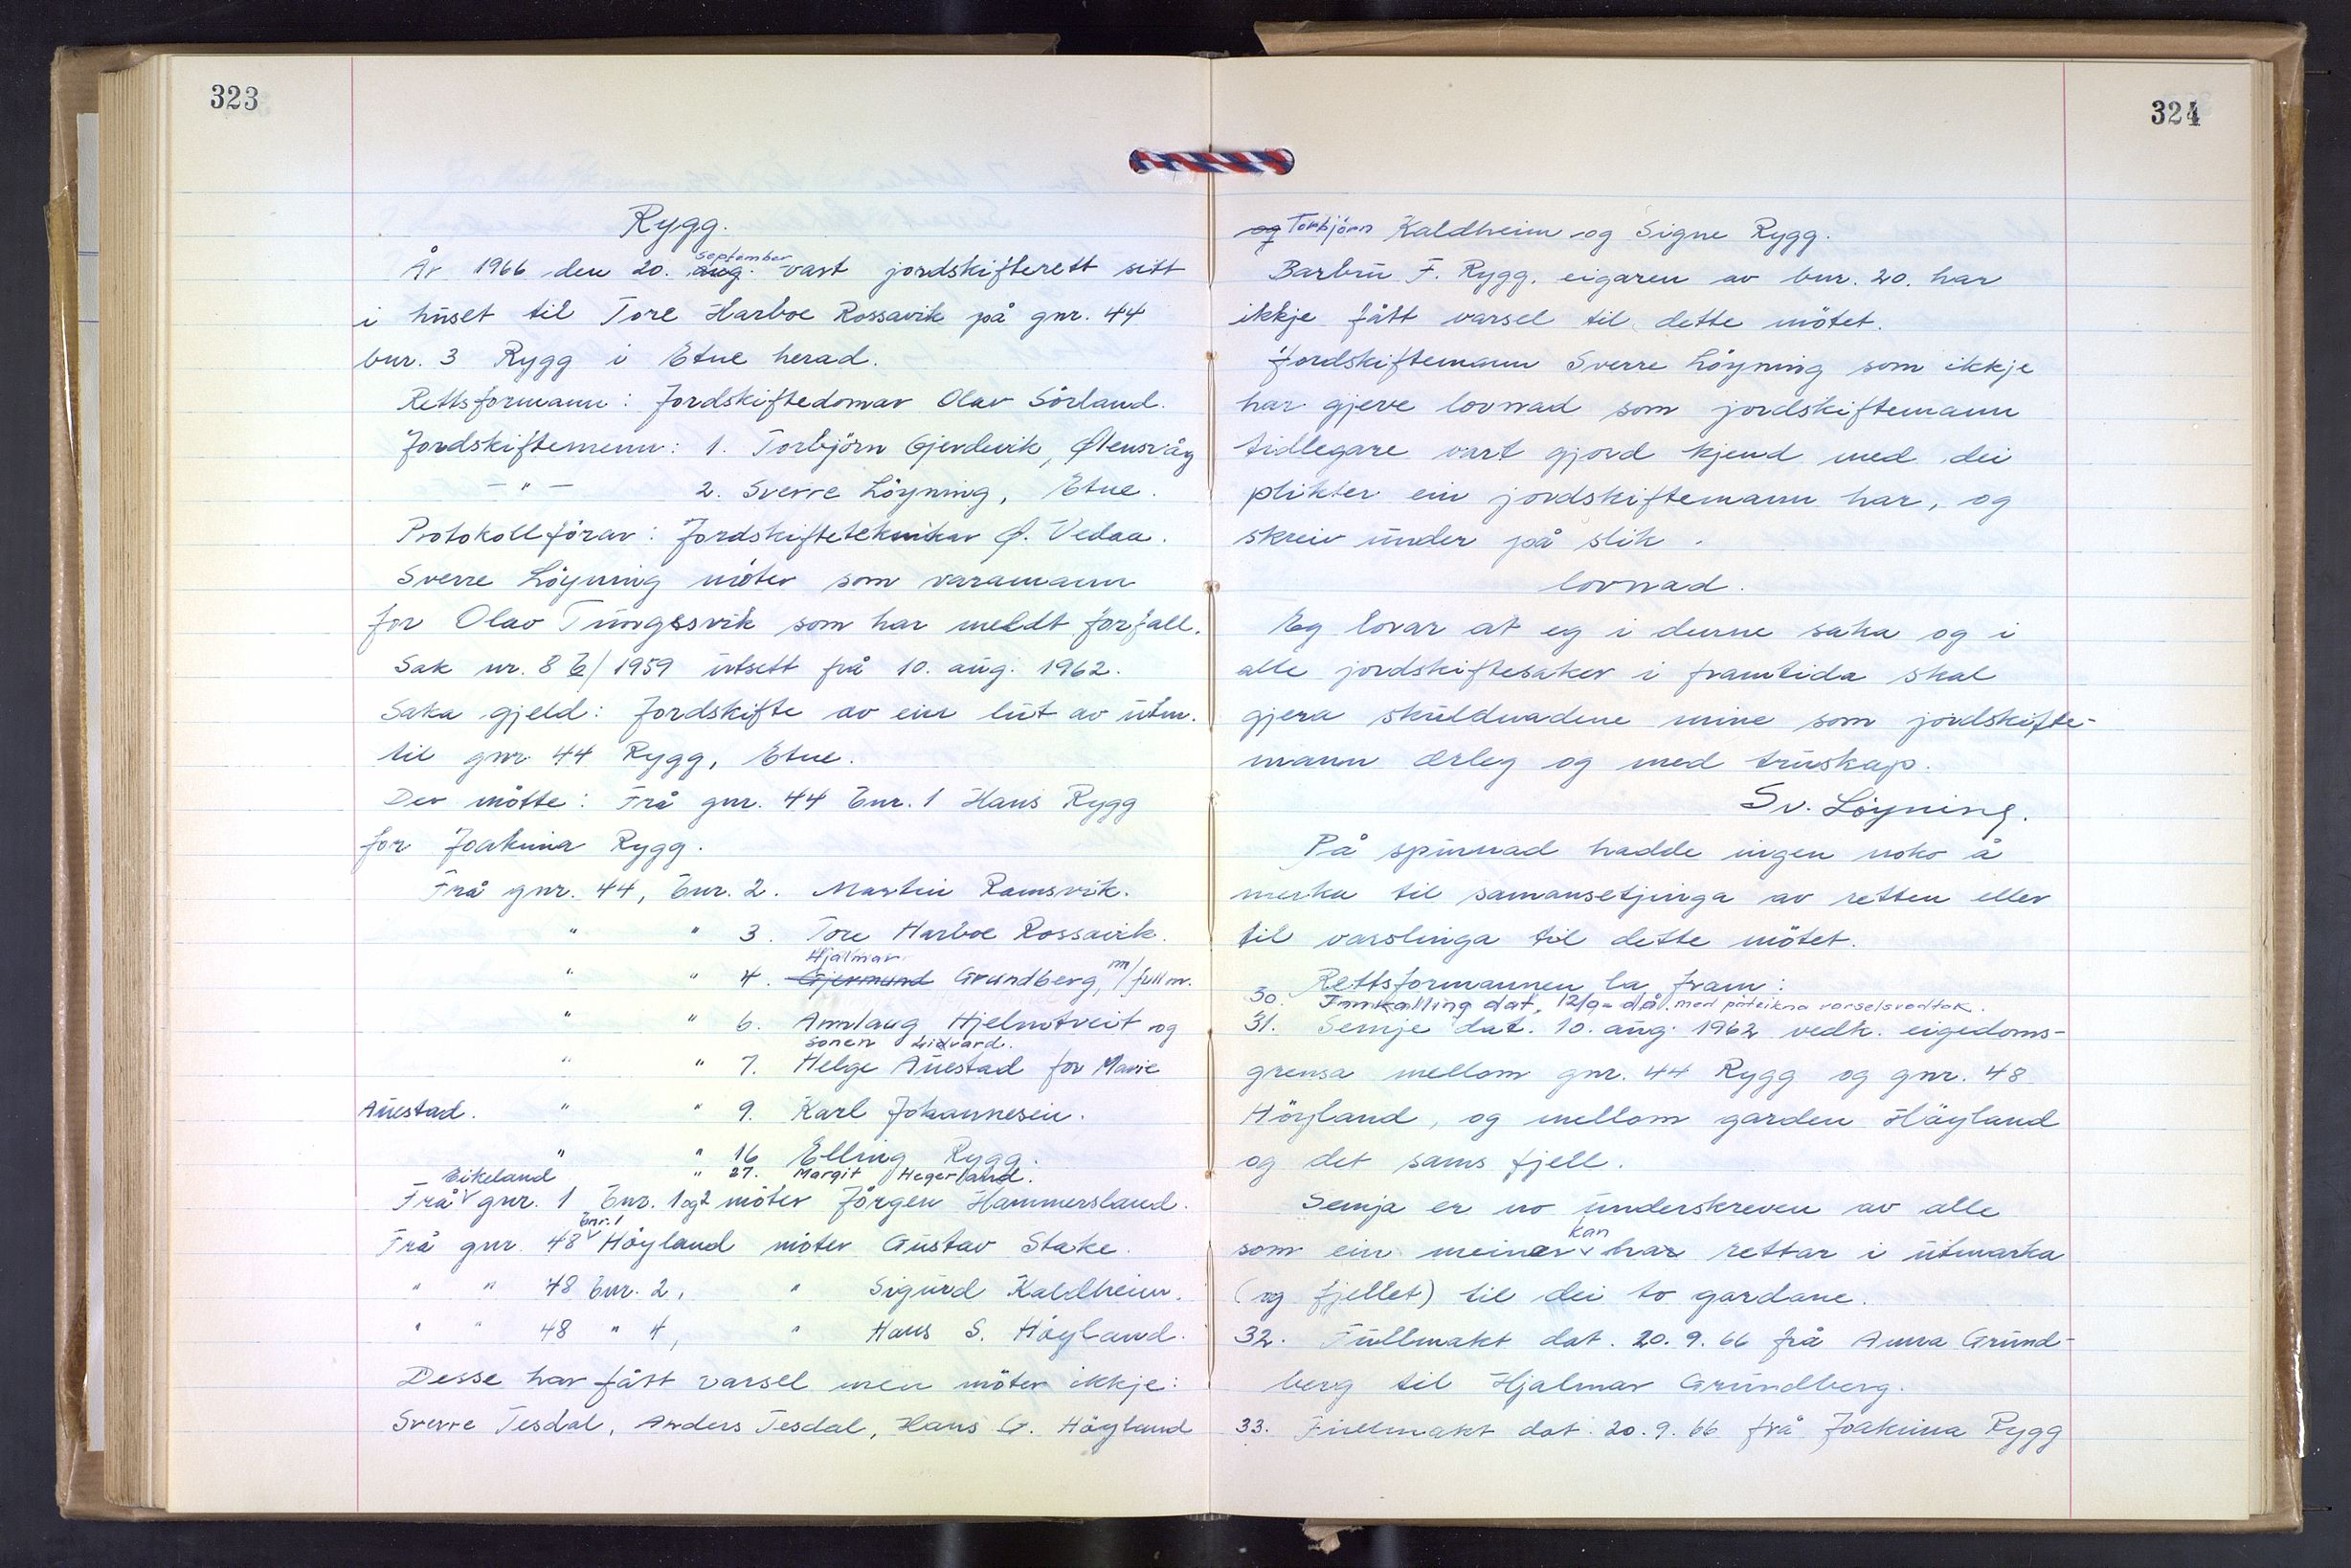 323
Rygg.
september
År 1966 den 20. aug. vart jordskifterett sett
i huset til Tore Harboe Rossavik på gnr. 44
bnr. 3 Rygg i Etne herad.
Rettsformann: Jordskiftedomar Olav Sörland.
Jordskiftemenn: 1. Torbjörn Gjerdevik, Ølensvåg
— " — 2. Sverre Löyning, Etne.
Protokollförar: Jordskifteteknikar Ø. Vedaa.
Sverre Löyning möter som varamann
for Olav Tungesvik som har meldt forfall.
Sak nr. 8 b/1959 utsett frå 10. aug. 1962.
Saka gjeld: Jordskifte av ein lut av utm.
til gnr. 44 Rygg, Etne.
Der mötte: Frå gnr. 44 bnr. 1 Hans Rygg
for Joakima Rygg.
Frå gnr. 44, bnr. 2. Martin Ramsvik.
" " 3. Tore Harboe Rossavik.
Hjalmar
" " 4. Gjermund Grundberg, m/fullm.
" " 6. Annlaug Hjelmtveit og
sonen Lidvard.
" " 7. Helge Auestad for Marie
Auestad. " " 9. Karl Johannesen.
" " 16 Elling Rygg.
" 27. Margit Hegerland.
Eikeland
Frå gnr. 1 bnr. 1 og 2 möter Jörgen Hammersland.
bnr. 1
Frå gnr. 48 Höyland möter Gustav Stake.
" " 48 bnr. 2, " Sigurd Kaldheim.
" " 48 " 4, " Hans S. Höyland.
Desse har fått varsel men möter ikkje:
Sverre Tesdal, Anders Tesdal, Hans G. Höyland
324
og Torbjörn Kaldheim og Signe Rygg.
Barbru F. Rygg, eigaren av bnr. 20. har
ikkje fått varsel til dette mötet.
Jordskiftemann Sverre Löyning som ikkje
har gjeve lovnad som jordskiftemann
tidlegare vart gjord kjend med dei
plikter ein jordskiftemann har, og
skreiv under på slik .
lovnad.
Eg lovar at eg i denne saka og i
alle jordskiftesaker i framtida skal
gjera skuldnadene mine som jordskifte-
mann ærleg og med truskap.
Sv. Löyning.
På spurnad hadde ingen noko å
merka til samansetjinga av retten eller
til varslinga til dette mötet.
Rettsformannen la fram:
30. Innkalling dat. 12/9- d.å. med påteikna varselsvedtak.
31. Semje dat. 10. aug. 1962 vedk. eigedoms-
grensa mellom gnr. 44 Rygg og gnr. 48
Höyland, og mellom garden Höyland
og det sams fjell.
Semja er no underskreven av alle
kan
som ein meiner har rettar i utmarka
(og fjellet) til dei to gardane.
32. Fullmakt dat. 20.9.66 frå Anna Grund-
berg til Hjalmar Grundberg.
33. Fullmakt dat. 20.9.66 frå Joakima Rygg